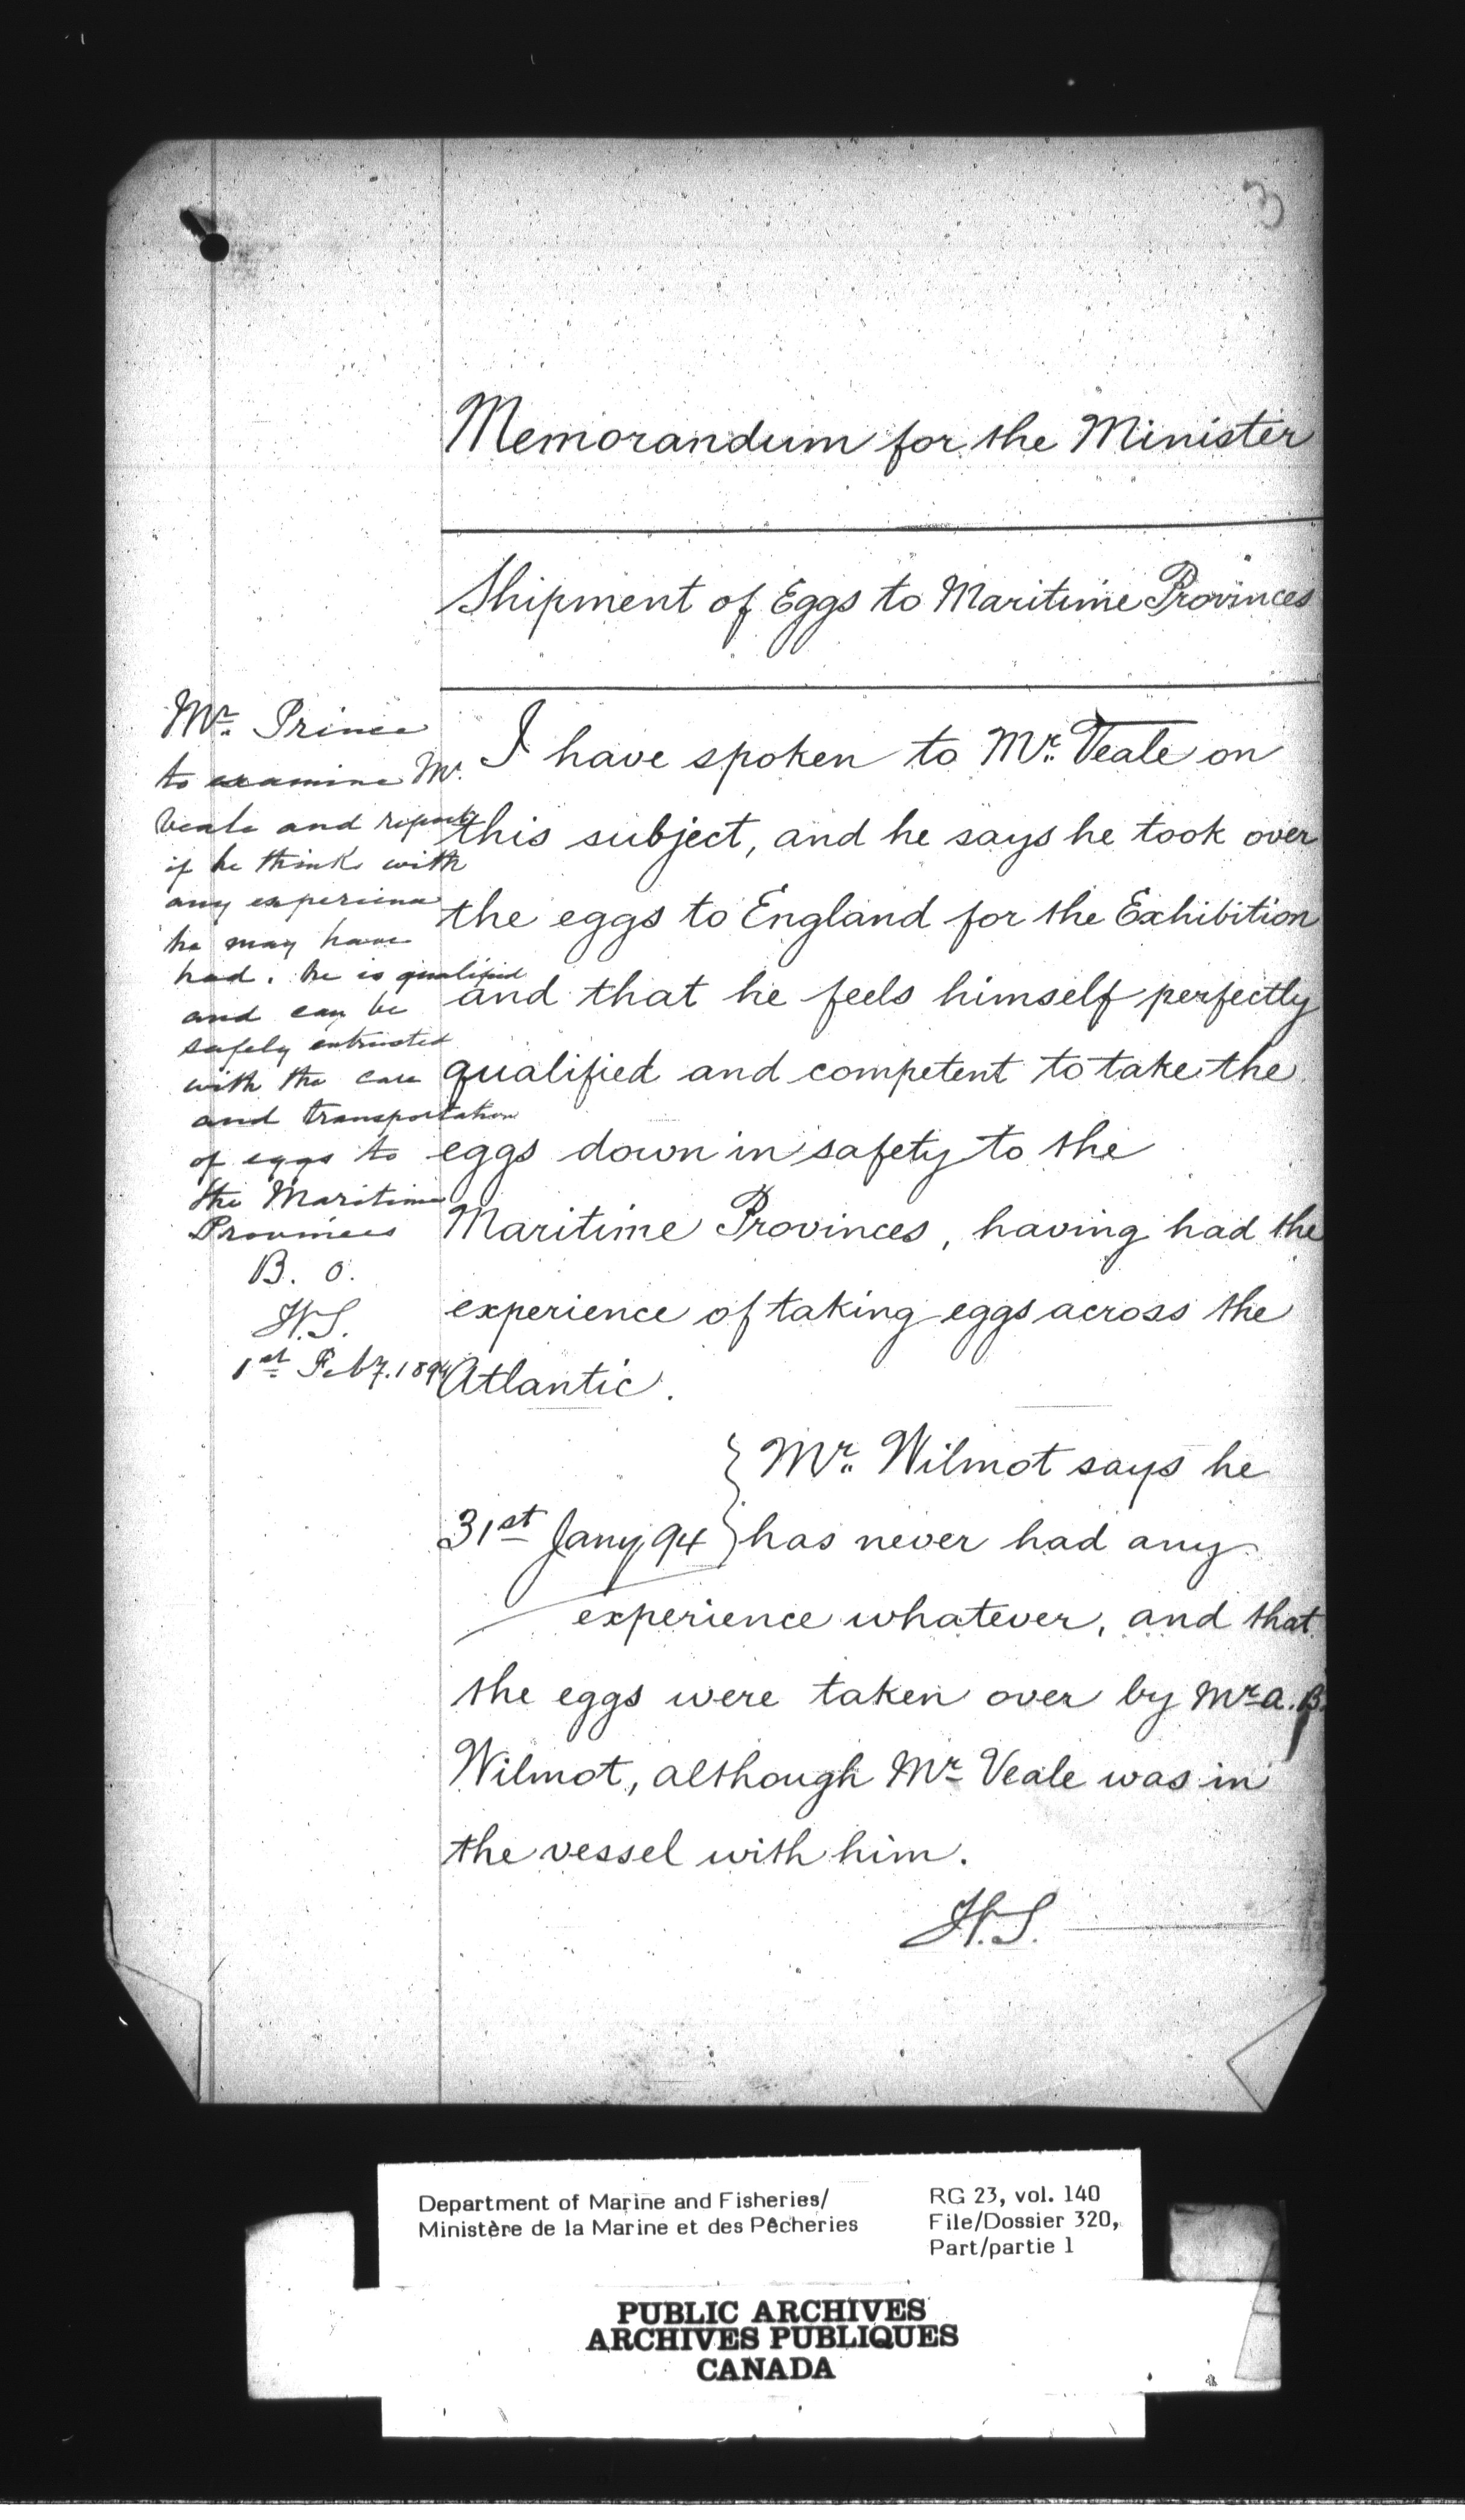 3
Memorandum for the Minister
Shipment of Eggs to Maritime Provinces
Mr. Prince
to examine Mr.
Veale and report
if he thinks with
any experience
he may have
had, he is qualified
and can be
safely entrusted
with the care
and transportation
of eggs to
the Maritime
Provinces
B. O.
H.S.
1st Feby. 1894
I have spoken to Mr. Veale on
this subject, and he says he took over
the eggs to England for the Exhibition
and that he feels himself perfectly
qualified and competent to take the
eggs down in safety to the
Maritime Provinces, having had the
experience of taking eggs across the
Atlantic.
Mr. Wilmot says he
31st Jany 94 } has never had any
experience whatever, and that
the eggs were taken over by Mr A. B.
Wilmot, although Mr Veale was in
the vessel with him.
H.S.
Department of Marine and Fisheries/
Ministère de la Marine et des Pêcheries
RG 23, vol. 140
File/Dossier 320,
Part/partie 1
PUBLIC ARCHIVES
ARCHIVES PUBLIQUES
CANADA